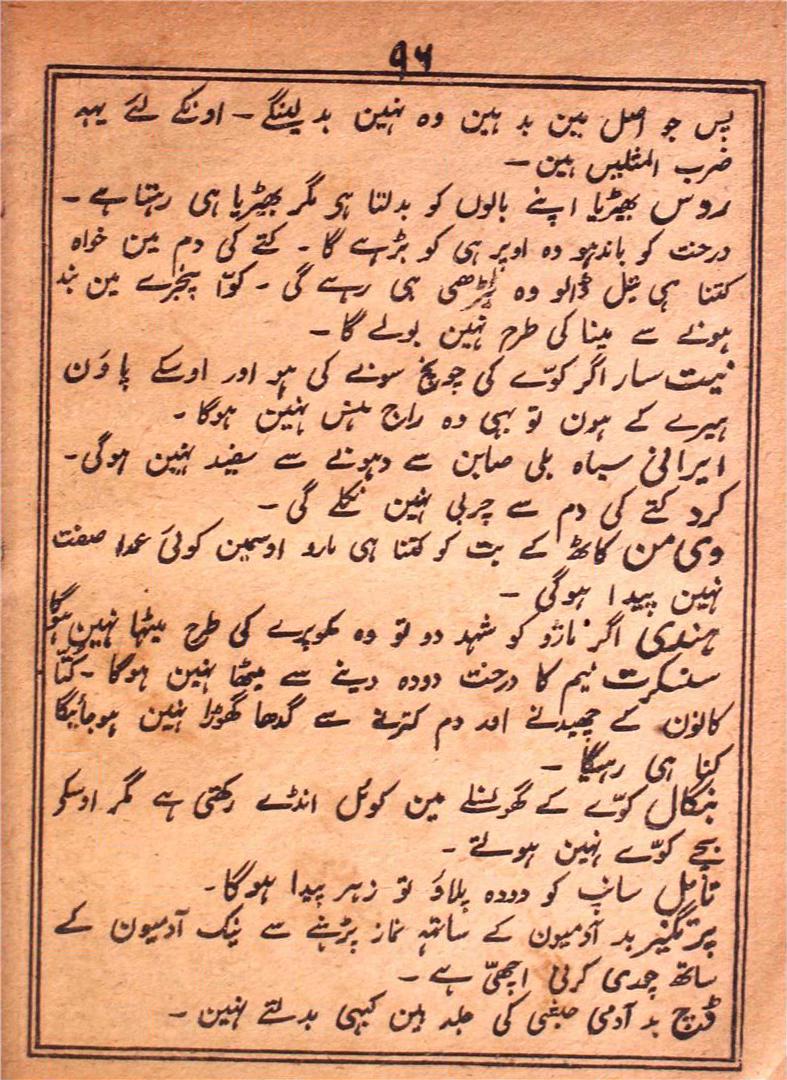 ۹۶
پس جو اصل مین بد ہین وہ نہین بدلینگے ۔ اونکے لئے یہہ
ضرب المثلیں ہین ۔
روس بھیڑیا اپنے بالوں کو بدلتا ہی مگر بھیڑیا ہی رہتا ہے ۔
درخت کو باندہو وہ اوپر ہی کو بڑہے گا ۔ کتے کی دم مین خواہ
کتنا ہی تیل ڈالو وہ ٹیڑھی ہی رہے گی ۔ کوّا پنجرے مین بند
ہونے سے مینا کی طرح نہین بولے گا ۔
نیت سار اگر کوّے کی چونچ سونے کی ہو اور اوسکے پاوَن
ہیرے کے ہون تو بہی وہ راج ہنس نہین ہوگا ۔
ایرانی سیاہ بلی صابن سے دہونے سے سفید نہین ہوگی ۔
کرد کتے کی دم سے چربی نہین نکلے گی ۔
وی من کاٹھ کے بت کو کتنا ہی مارو اوسمین کوئی عمدا صفت
نہین پیدا ہوگی ۔
ہندی اگر ناڑو کو شہد دو تو وہ کھوپرے کی طرح میٹھا نہین ہوگا
سنسکرت نیم کا درخت دودہ دینے سے میٹھا نہین ہوگا ۔ کتّا
کانون کے چھیدنے اور دم کترنے سے گدھا گھوڑا نہین ہوجائیگا
کتا ہی رہیگا ۔
بنگال کوّے کے گھونسلے مین کوئل انڈے رکھتی ہے مگر اوسکو
بچے کوّے نہین ہوتے ۔
تامل سانپ کو دودہ پلاوَ تو زہر پیدا ہوگا ۔
پرتگیز بد آدمیون کے ساتہہ نماز پڑہنے سے نیک آدمیون کے
ساتھ چوری کرنی اچھیّ ہے ۔
ڈچ بد آدمی حبشی کی جلد ہین کبہی بدلتے نہین ۔